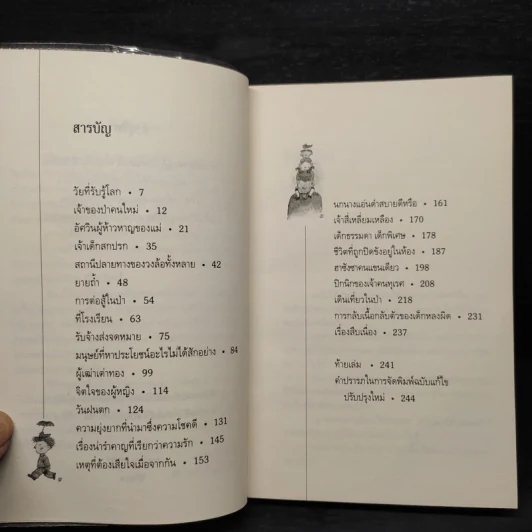 สารบัญ
วัยที่รับรู้โลก • 7
เจ้าของป่าคนใหม่ • 12
อัศวินผู้ห้าวหาญของแม่ • 21
เจ้าเด็กสกปรก • 35
สถานีปลายทางของวงล้อทั้งหลาย • 42
ยายถ้ำ • 48
การต่อสู้ในป่า • 54
ที่โรงเรียน • 63
รับจ้างส่งจดหมาย • 75
มนุษย์ที่หาประโยชน์อะไรไม่ได้สักอย่าง • 84
ผู้เฒ่าเต่าทอง • 99
จิตใจของผู้หญิง • 114
วันฝนตก • 124
ความยุ่งยากที่นำมาซึ่งความโชคดี • 131
เรื่องน่ารำคาญที่เรียกว่าความรัก • 145
เหตุที่ต้องเสียใจเมื่อจากกัน • 153
นกนางแอ่นดำสบายดีหรือ • 161
เจ้าสี่เหลี่ยมเหลือง • 170
เด็กธรรมดา เด็กพิเศษ • 178
ชีวิตที่ถูกปิดขังอยู่ในห้อง • 187
ฮาซังชาคนแขนเดียว • 198
ปิกนิกของเจ้าคนทุเรศ • 208
เดินเที่ยวในป่า • 218
การกลับเนื้อกลับตัวของเด็กหลงผิด • 231
เรื่องสืบเนื่อง • 237
ท้ายเล่ม • 241
คำปรารภในการจัดพิมพ์ฉบับแก้ไข
ปรับปรุงใหม่ • 244